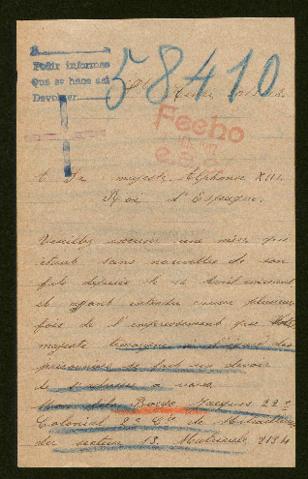 Pedir informes
Que se hace así
Devolver
58410
Fecho
A Sa majesté Alphonse XIII
Roi d'Espagne.
Veuillez excuser une mère qui
étant sans nouvelles de son
fils depuis le 16 Avril
et ayant entendu plusieurs
fois de l'empressement que Votre
majesté
prisonniers de fait un devoir
de s'adresser a vous
Mon fils Jacques 22e
Colonial 2e Cie de Mitrailleuses
du secteur 13. Matricule 2134